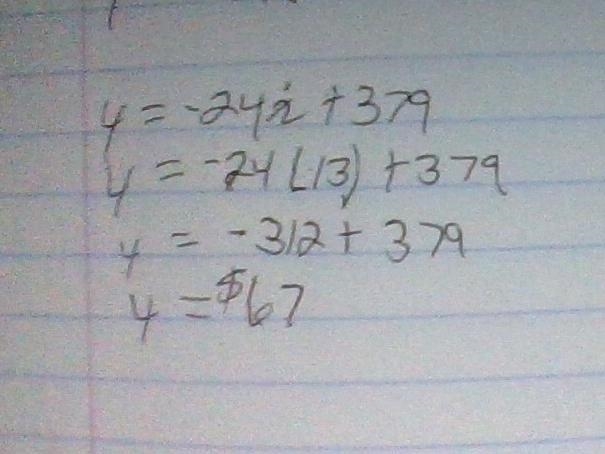 y = -24x + 379
y = -24(13) + 379
y = -312 + 379
y = $67